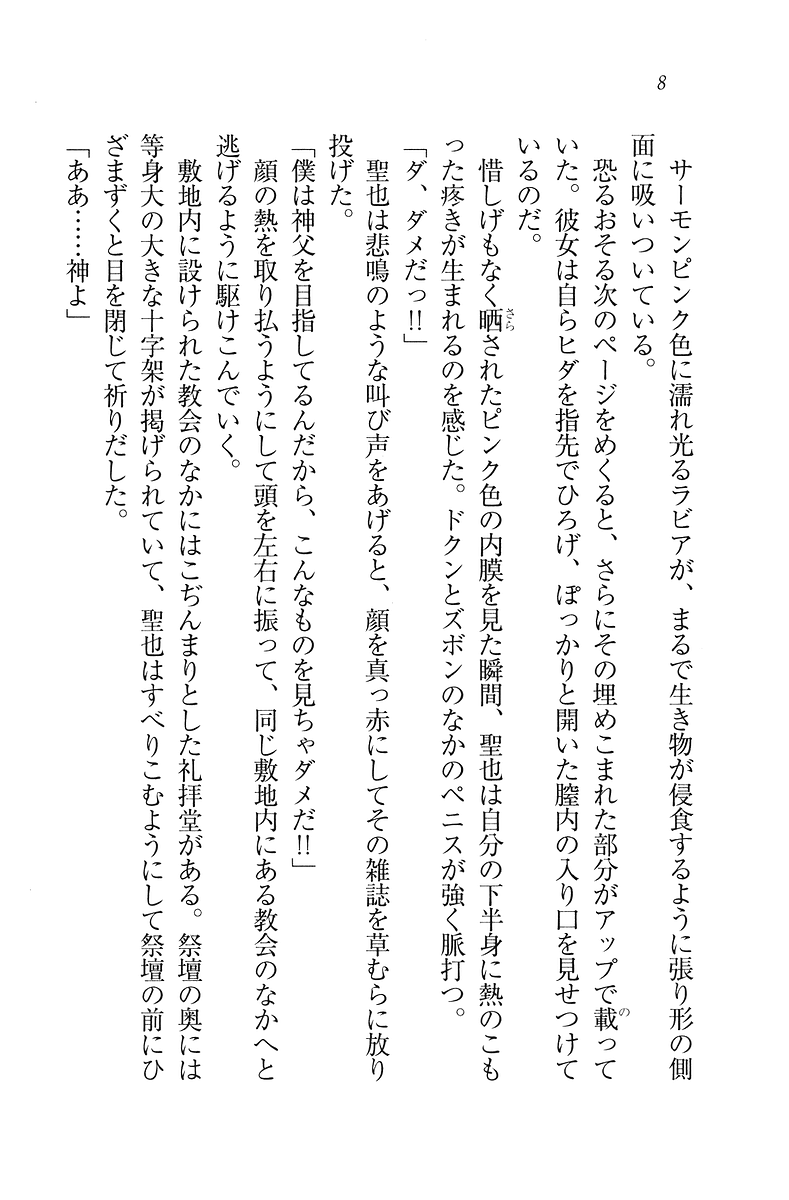 8
サーモンピンク色に濡れ光るラビアが、まるで生き物が侵食するように張り形の側
面に吸いついている。
恐るおそる次のページをめくると、さらにその埋めこまれた部分がアップで載って
いた。彼女は自らヒダを指先でひろげ、ぽっかりと開いた膣内の入り口を見せつけて
いるのだ。
惜しげもなく晒されたピンク色の内膜を見た瞬間、聖也は自分の下半身に熱のこも
った疼きが生まれるのを感じた。ドクンとズボンのなかのペニスが強く脈打つ。
「ダ、ダメだっ!!」
聖也は悲鳴のような叫び声をあげると、顔を真っ赤にしてその雑誌を草むらに放り
投げた。
「僕は神父を目指してるんだから、こんなものを見ちゃダメだ!!」
顔の熱を取り払うようにして頭を左右に振って、同じ敷地内にある教会のなかへと
逃げるように駆けこんでいく。
敷地内に設けられた教会のなかにはこぢんまりとした礼拝堂がある。祭壇の奥には
等身大の大きな十字架が掲げられていて、聖也はすべりこむようにして祭壇の前にひ
ざまずくと目を閉じて祈りだした。
「ああ……神よ」